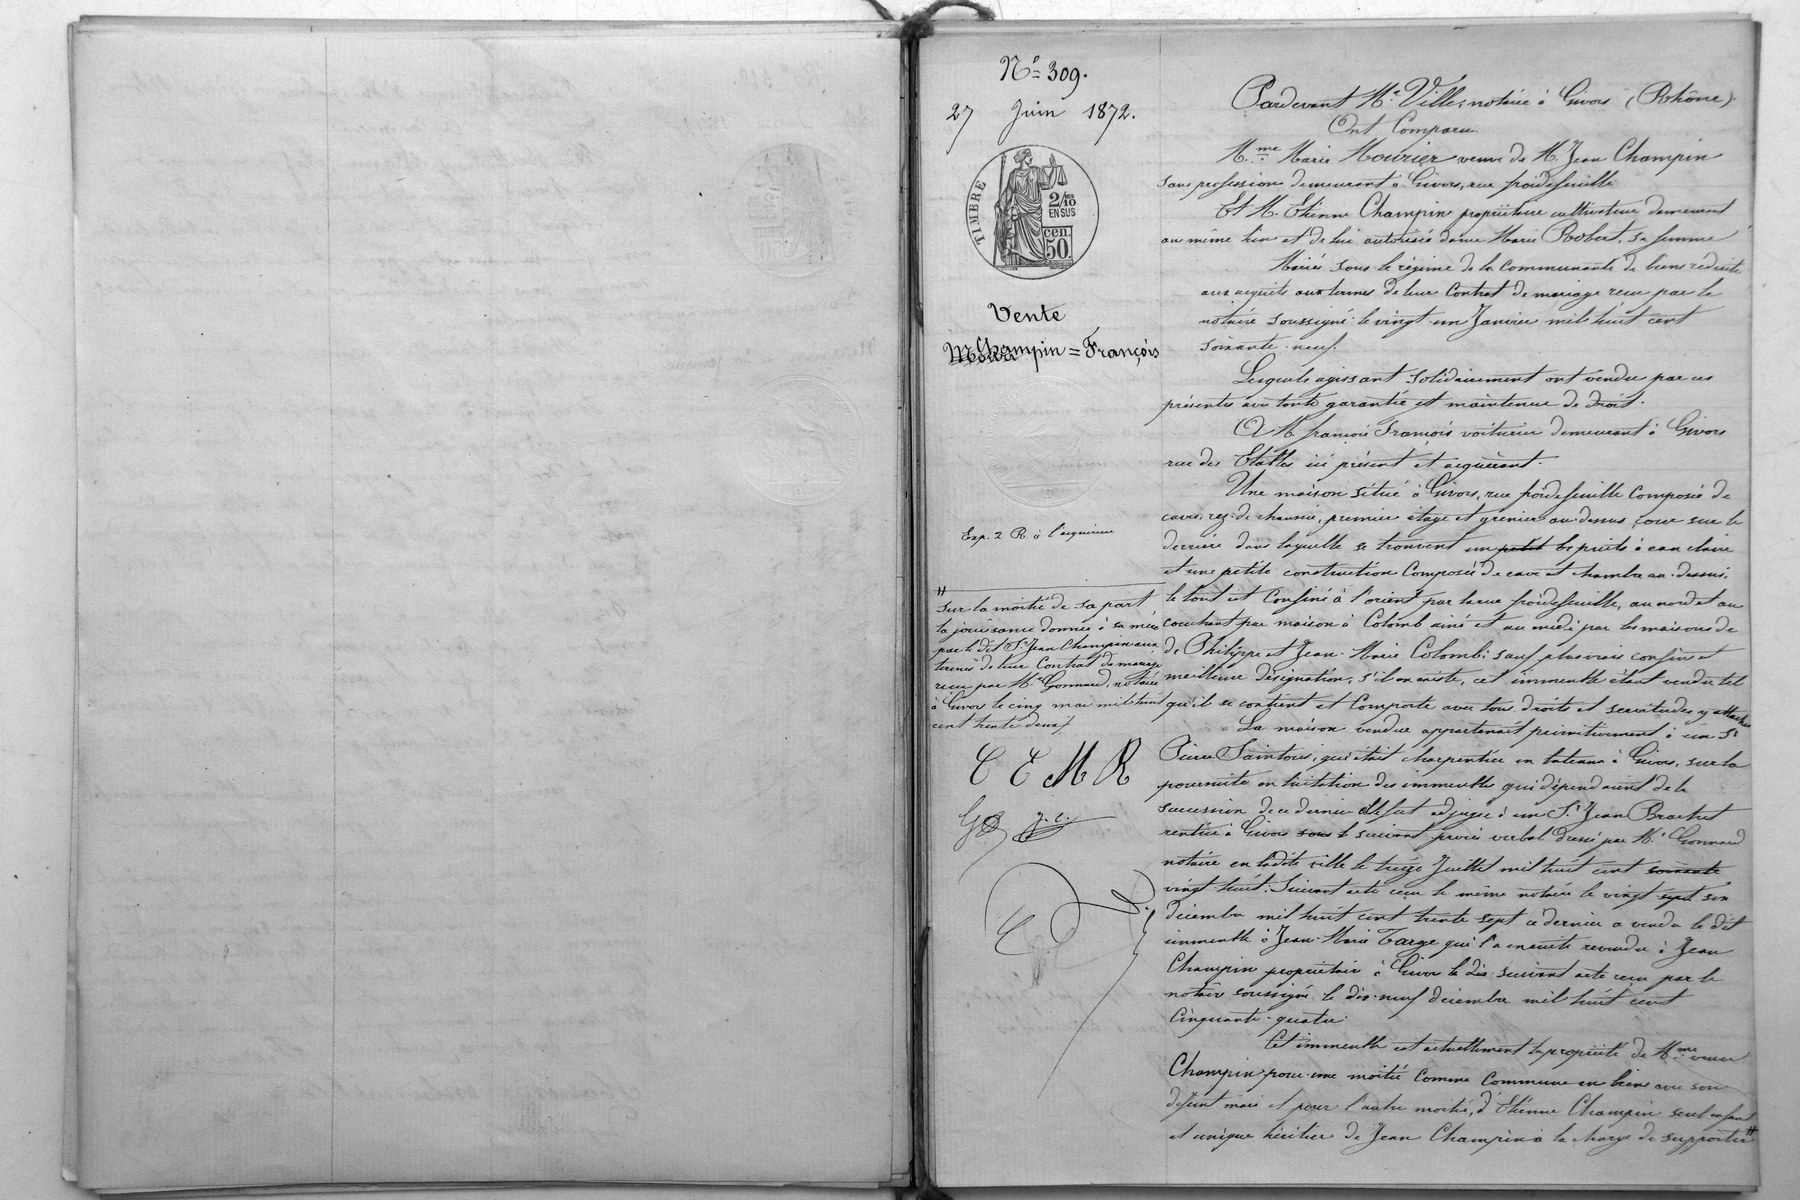 Nº 309.
27 Juin 1872.
TIMBRE
2/10
EN SUS
50 cen.
Vente
Champin = François
Exp. 2 R à l'acquéreur
sur la moitié de sa part
la jouissance donnée à sa mère
par le dit Sr Jean Champin aux
termes de leur Contrat de mariage
reçu par Me Gonnard, notaire
à Givors le cinq mai mil huit
cent trente deux
C E M R
J. C.
Pardevant Me Ville, notaire à Givors (Rhône).
Ont Comparu.
Mme Marie Mourier veuve de M. Jean Champin
sans profession demeurant à Givors, rue froidefeuille
Et M. Etienne Champin propriétaire cultivateur demeurant
au même lieu et de lui autorisée dame Marie Robert, sa femme
Mariés sous le régime de la Communauté de biens réduite
aux acquets aux termes de leur Contrat de mariage reçu par le
notaire soussigné le vingt-un Janvier mil huit cent
soixante-neuf.
Lesquels agissant solidairement ont vendu par ces
présentes avec toute garantie et maintenue de droit.
A M. françois François voiturier demeurant à Givors
rue des Etables ici présent et acquérant.
Une maison située à Givors, rue froidefeuille Composée de
cave, rez-de-chaussée, premier étage et grenier au-dessus, cour sur le
derrière dans laquelle se trouvent un petit le puits à eau claire
et une petite construction Composée de cave et chambre au-dessus,
le tout est Confiné à l'orient par la rue froidefeuille, au nord et au
couchant par maison à Colomb ainé et au midi par les maisons de
de Philippe et Jean-Marie Colomb; sauf plus vrais confins et
meilleure désignation, s'il en existe, cet immeuble étant vendu tel
qu'il se contient et Comporte avec tous droits et servitudes y attachés
La maison vendue appartenait primitivement à un Sr
Pierre Saintours, qui était charpentier en bateaux à Givors, sur la
poursuite en licitation des immeubles qui dépendaient de la
succession de ce dernier elle fut adjugée à un Sr Jean Brachet
rentier à Givors sous le suivant procès verbal dressé par Me Gonnard
notaire en ladite ville le treize Juillet mil huit cent soixante
vingt-huit. Suivant acte reçu le même notaire le vingt sept six
décembre mil huit cent trente sept ce dernier a vendu le dit
immeuble à Jean-Marie Targe qui l'a ensuite revendu à Jean
Champin propriétaire à Givors le dix suivant acte reçu par le
notaire soussigné le dix-neuf décembre mil huit cent
Cinquante-quatre.
Cet immeuble est actuellement la propriété de Mme veuve
Champin pour une moitié Comme Commune en biens avec son
défunt mari et pour l'autre moitié, d'Etienne Champin seul enfant
et unique héritier de Jean Champin à la charge de supporter